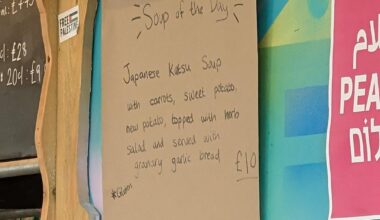 £28
20cl : £9
FREE
PALESTINE
Soup of the Day
Japanese Katsu Soup
with carrots, sweet potato,
new potato, topped with herb
salad and served with
granary garlic bread
£10
سلام
PEA
שלום